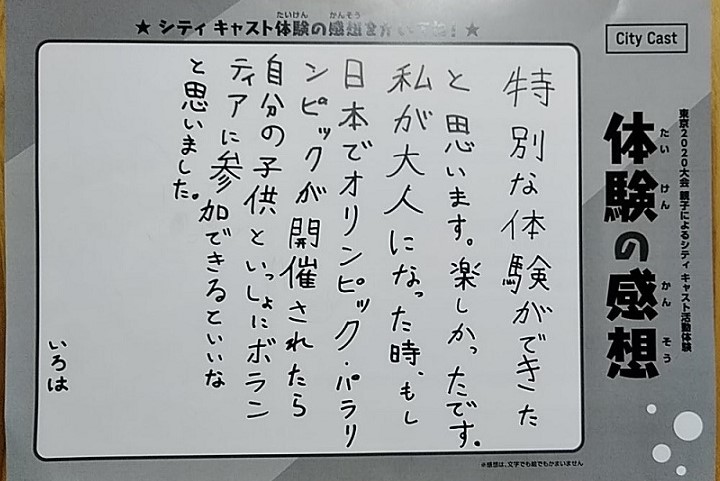 ★ シティ キャスト体験の感想を書いてね！★
たいけん
かんそう
City Cast
東京2020大会 親子によるシティキャスト活動体験
体験の感想
たい けん かん そう
特別な体験ができた
と思います。楽しかったです。
私が大人になった時、もし
日本でオリンピック・パラリ
ンピックが開催されたら
自分の子供といっしょにボラン
ティアに参加できるといいな
と思いました。
いろは
※感想は、文字でも絵でもかまいません